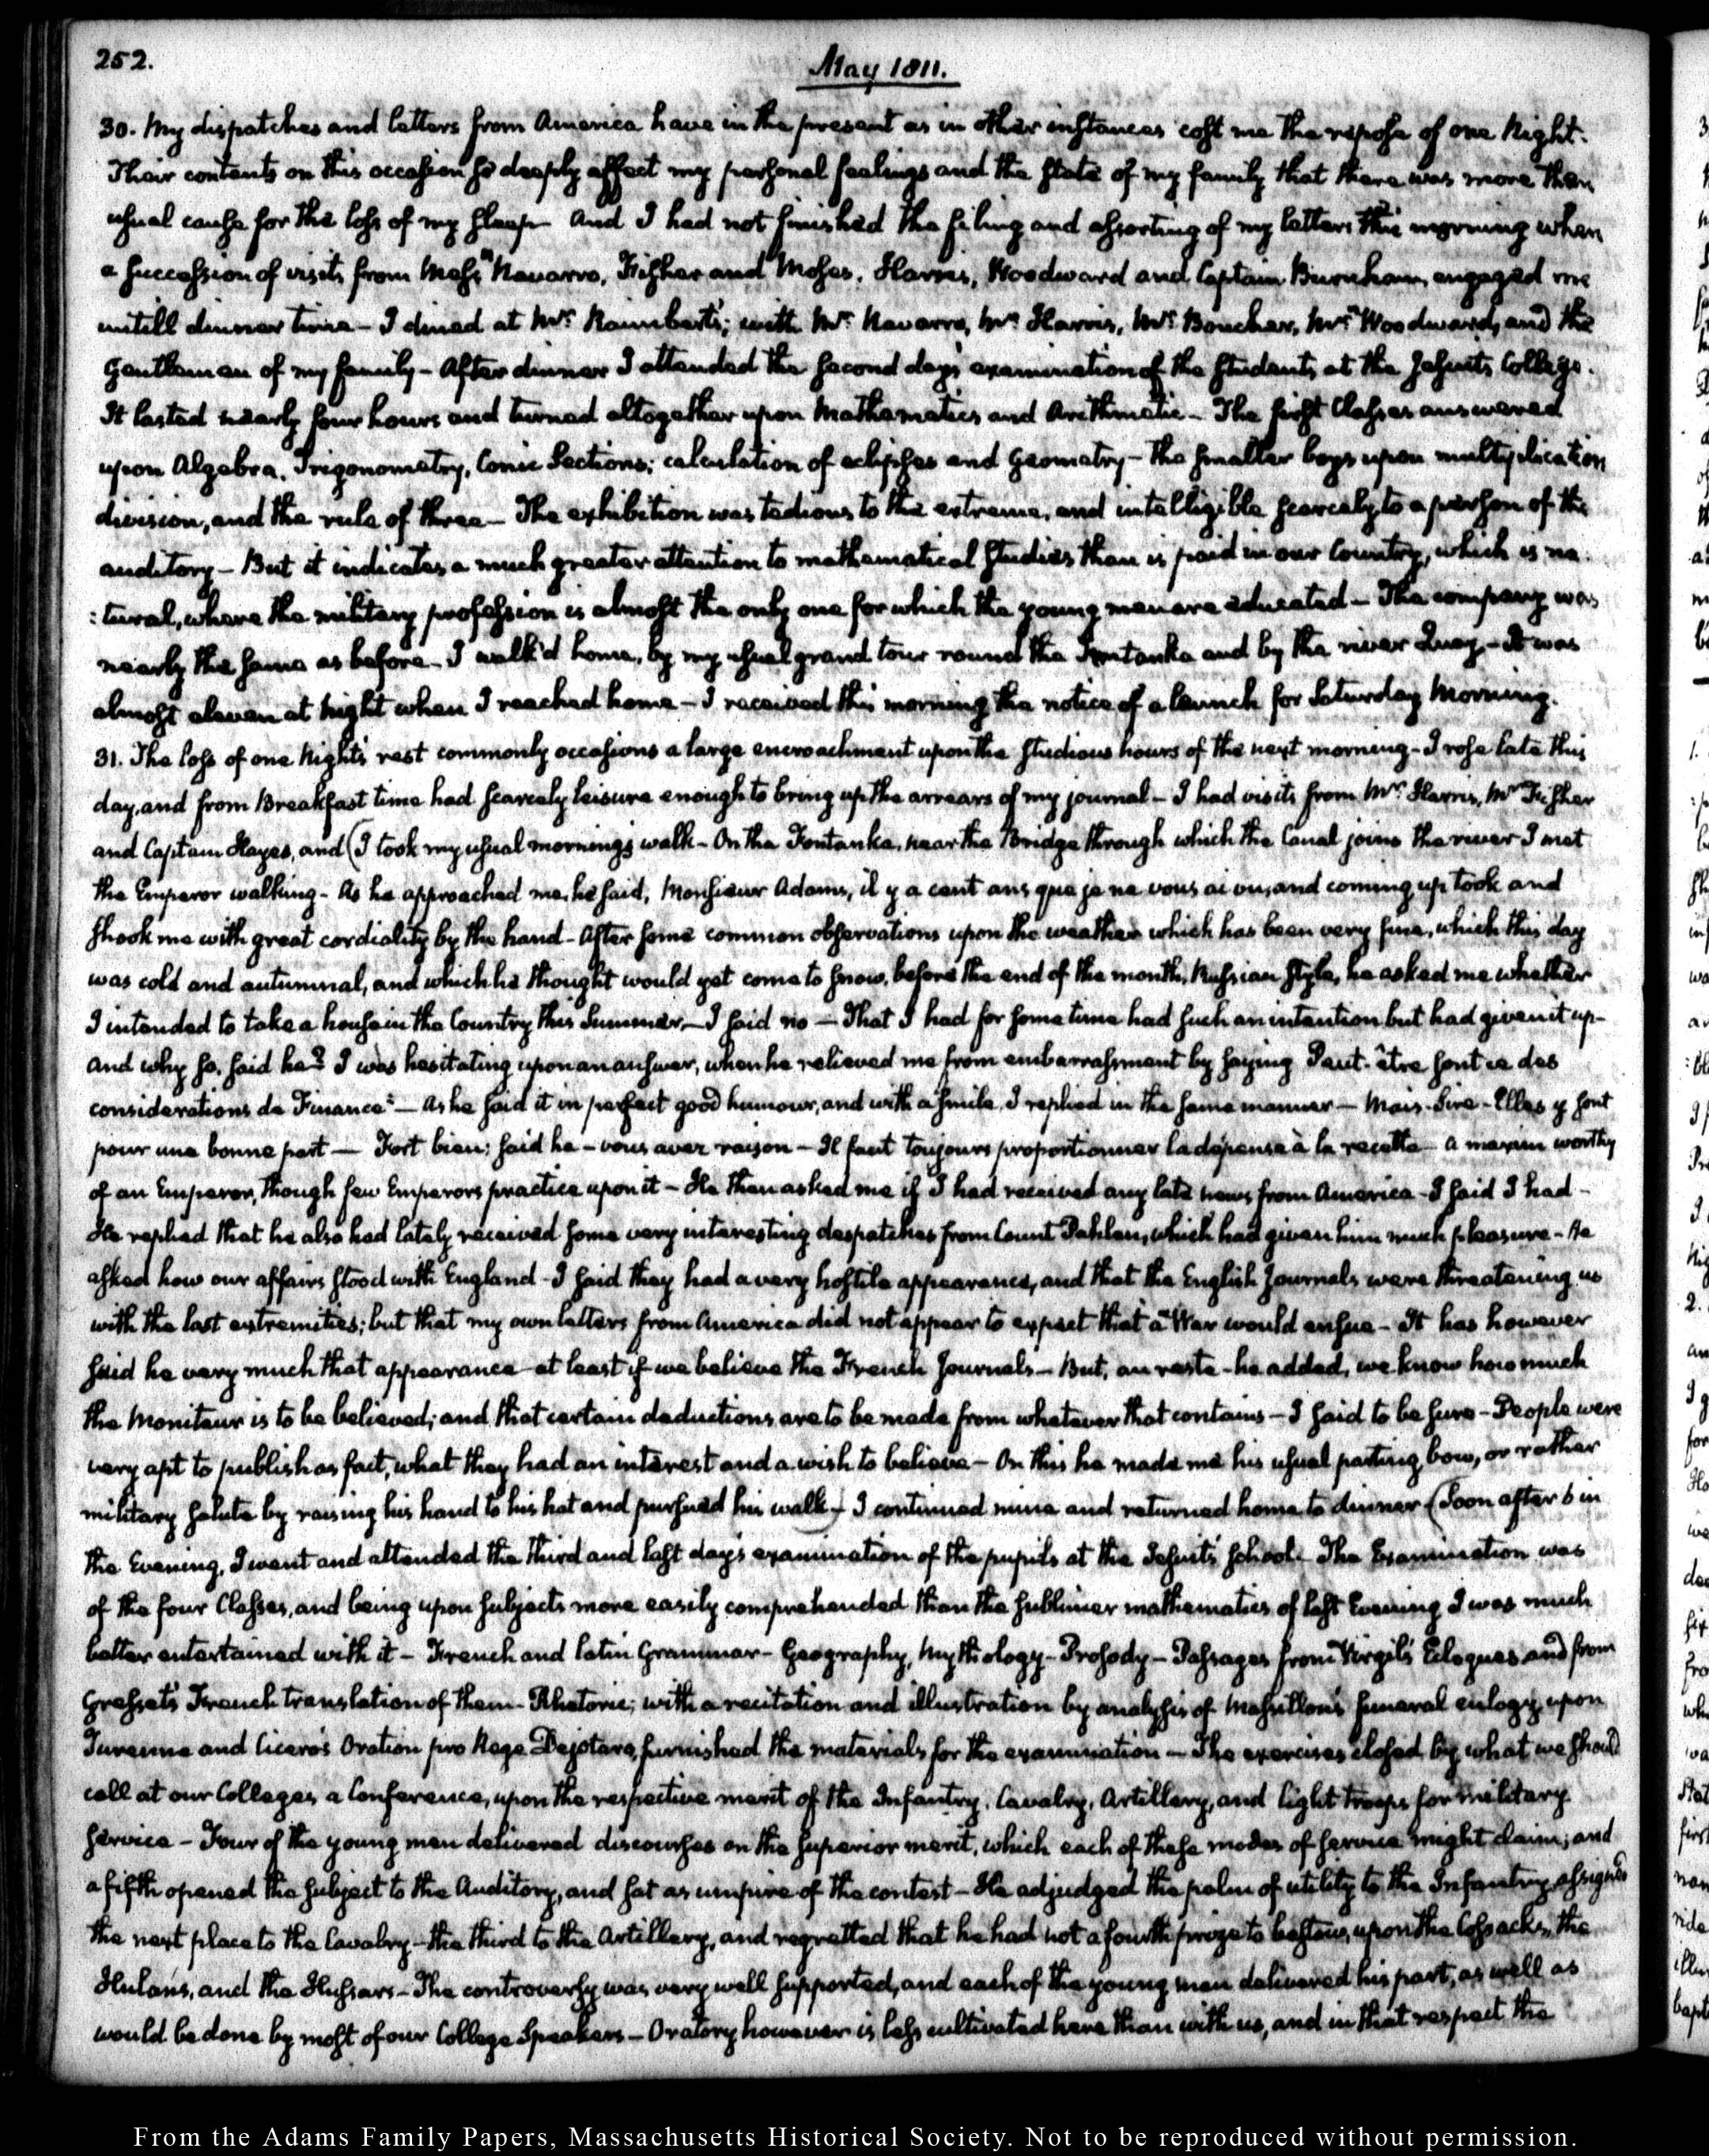 252.
May 1811.
30. My dispatches and letters from America have in the present as in other instances cost me the repose of one Night.
Their contents on this occasion so deeply affect my personal feelings and the state of my family that there was more than
usual cause for the loss of my sleep— And I had not finished the filing and assorting of my letters this morning when
a succession of visits from Messrs Navarro, Fisher and Moses, Harris, Woodward and Captain Burnham, engaged me
untill dinner time— I dined at Mr. Raimbert's; with Mr. Navarro, Mr. Harris, Mr. Boucher, Mr. Woodward, and the
gentlemen of my family— After dinner I attended the second day's examination of the students at the Jesuits College.
It lasted nearly four hours and turned altogether upon Mathematics and Arithmetic— The first Classes answered
upon Algebra, Trigonometry, Conic Sections; calculation of eclipses and Geometry— The smaller boys upon multiplication
division, and the rule of three— The exhibition was tedious to the extreme, and intelligible scarcely to a person of the
auditory— But it indicates a much greater attention to mathematical studies than is paid in our Country, which is na
:tural, where the military profession is almost the only one for which the young men are educated— The company was
nearly the same as before— I walk'd home, by my usual grand tour round the Fontanka and by the river Quay— It was
almost eleven at Night when I reached home— I received this morning the notice of a launch for Saturday Morning.
31. The loss of one Night's rest commonly occasions a large encroachment upon the studious hours of the next morning— I rose late this
day, and from Breakfast time had scarcely leisure enough to bring up the arrears of my journal— I had visits from Mr. Harris, Mr Fisher
and Captain Hayes, and (I took my usual morning's walk— On the Fontanka, near the Bridge through which the Canal joins the river I met
the Emperor walking— As he approached me, he said, Monsieur Adams, il y a cent ans que je ne vous ai vu, and coming up took and
shook me with great cordiality by the hand— After some common observations upon the weather which has been very fine, which this day
was cold and autumnal, and which he thought would yet come to snow, before the end of the month, Russian Style, he asked me whether
I intended to take a house in the Country this Summer,— I said no— That I had for some time had such an intention but had given it up—
and why so, said he? I was hesitating upon an answer, when he relieved me from embarrassment by saying Peut-être sont ce des
considerations de Finance"— As he said it in perfect good humour, and with a smile, I replied in the same manner— Mais-Sire-Elles y sont
pour une bonne part— Fort bien; said he— vous avez raison— Il faut toujours proportionner la dépense à la recette— a maxim worthy
of an Emperor, though few Emperors practice upon it— He then asked me if I had received any late news from America— I said I had—
He replied that he also had lately received some very interesting despatches from Count Pahlen, which had given him much pleasure— He
asked how our affairs stood with England— I said they had a very hostile appearance, and that the English Journals were threatening us
with the last extremities; but that my own letters from America did not appear to expect that a War would ensue— It has however
said he very much that appearance— at least if we believe the French Journals— But, au reste— he added, we know how much
the Moniteur is to be believed; and that certain deductions are to be made from whatever that contains— I said to be sure— People were
very apt to publish as fact, what they had an interest and a wish to believe— On this he made me his usual parting bow, or rather
military salute by raising his hand to his hat and pursued his walk)— I continued mine and returned home to dinner (Soon after 6 in
the Evening, I went and attended the third and last day's examination of the pupils at the Jesuits' school— The Examination was
of the four Classes, and being upon subjects more easily comprehended than the sublimer mathematics of last Evening I was much
better entertained with it— French and Latin Grammar— Geography, Mythology— Prosody— Passages from Virgil's Eclogues and from
Gresset's French translation of them— Rhetoric; with a recitation and illustration by analysis of Massillon's funeral eulogy upon
Turenne and Cicero's Oration pro Rege Dejotaro, furnished the materials for the examination— The exercises closed by what we should
call at our Colleges, a Conference, upon the respective merit of the Infantry, Cavalry, Artillery, and light troops for military
service— Four of the young men delivered discourses on the superior merit, which each of these modes of service might claim; and
a fifth opened the subject to the Auditory, and sat as umpire of the contest— He adjudged the palm of utility to the Infantry, assigned
the next place to the Cavalry— the third to the Artillery, and regretted that he had not a fourth prize to bestow, upon the Cossacks, the
Hulans, and the Hussars— The controversy was very well supported, and each of the young men delivered his part, as well as
would be done by most of our College Speakers— Oratory however is less cultivated here than with us, and in that respect the
From the Adams Family Papers, Massachusetts Historical Society. Not to be reproduced without permission.